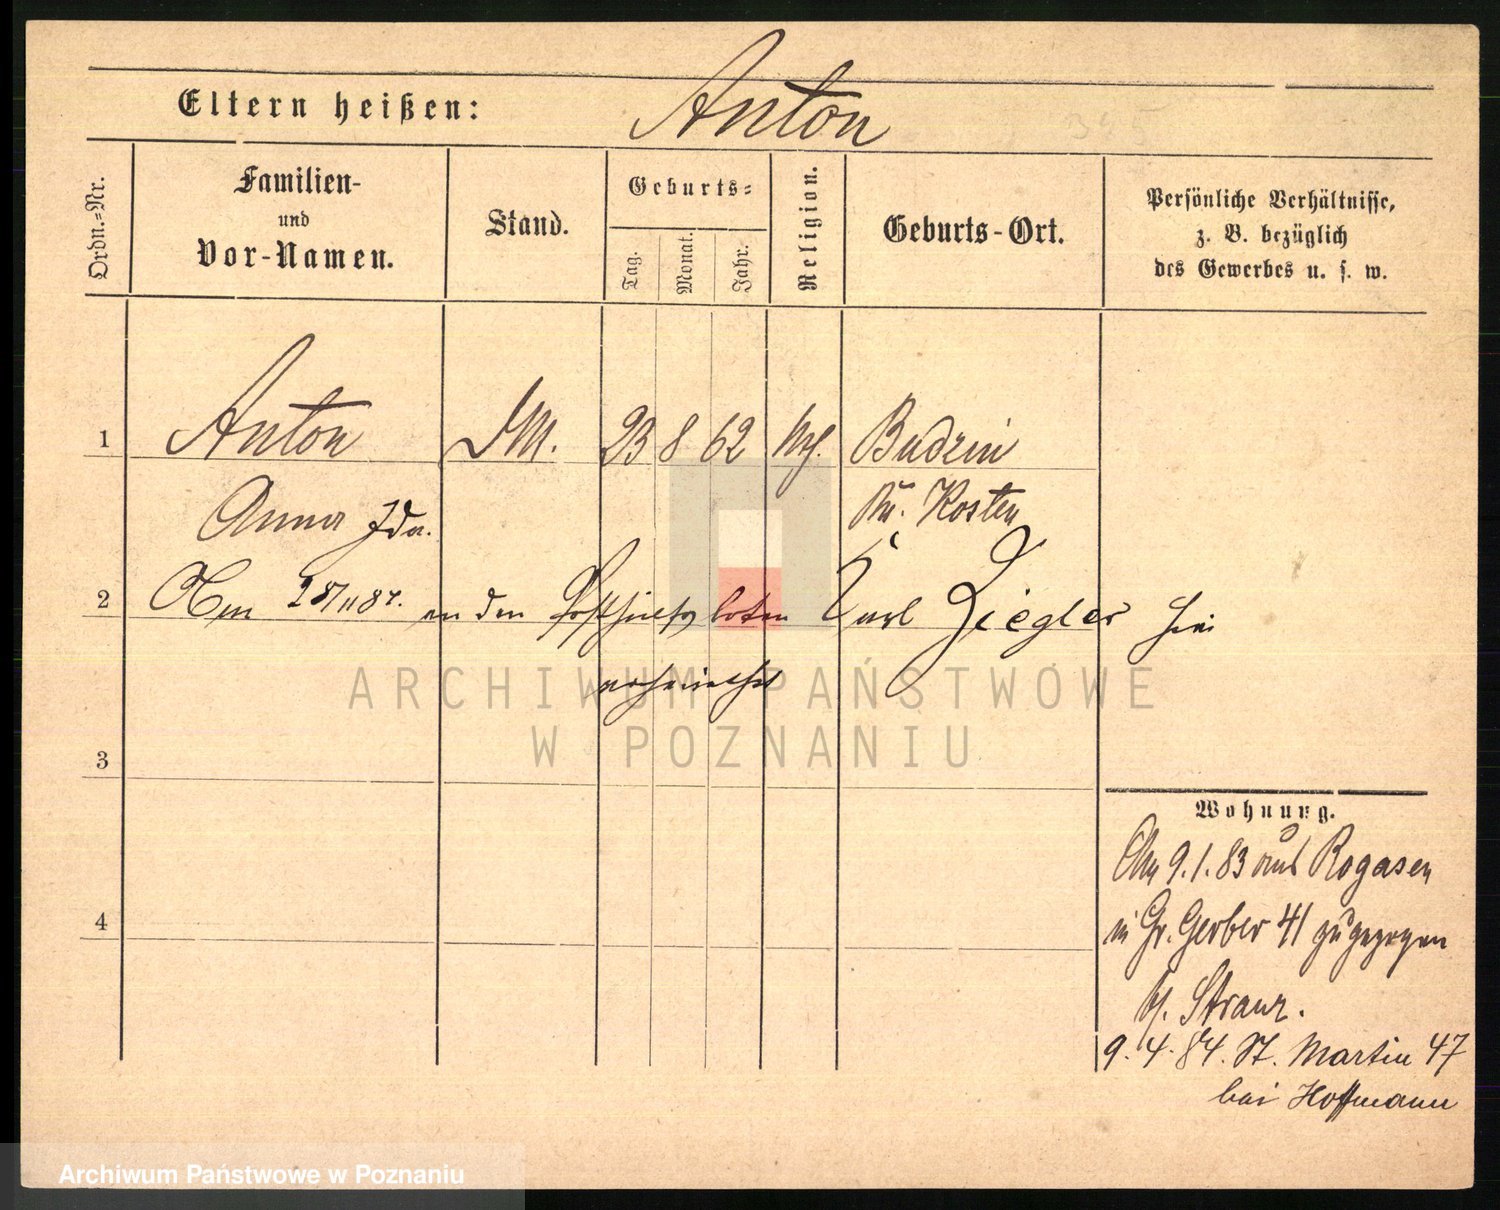 Eltern heißen: Anton
Ordn.=Nr.
Familien-
und
Vor-Namen.
Stand.
Geburts=
Tag.
Monat.
Jahr.
Religion.
Geburts-Ort.
Persönliche Verhältnisse,
z. B. bezüglich
des Gewerbes u. s. w.
1 Anton DM. 23 8 62 Budzin
Anna Ida. Kr. Kosten
2 Am 28/11 84. an den Posthülfsboten Karl Ziegler hier
verheirathet
ARCHIWUM PAŃSTWOWE
W POZNANIU
3
Wohnung.
Am 9.1.83 aus Rogasen
in Gr. Gerber 41 zugezogen
b/. Stranz.
9. 4. 84. St. Martin 47
bei Hoffmann
4
Archiwum Państwowe w Poznaniu